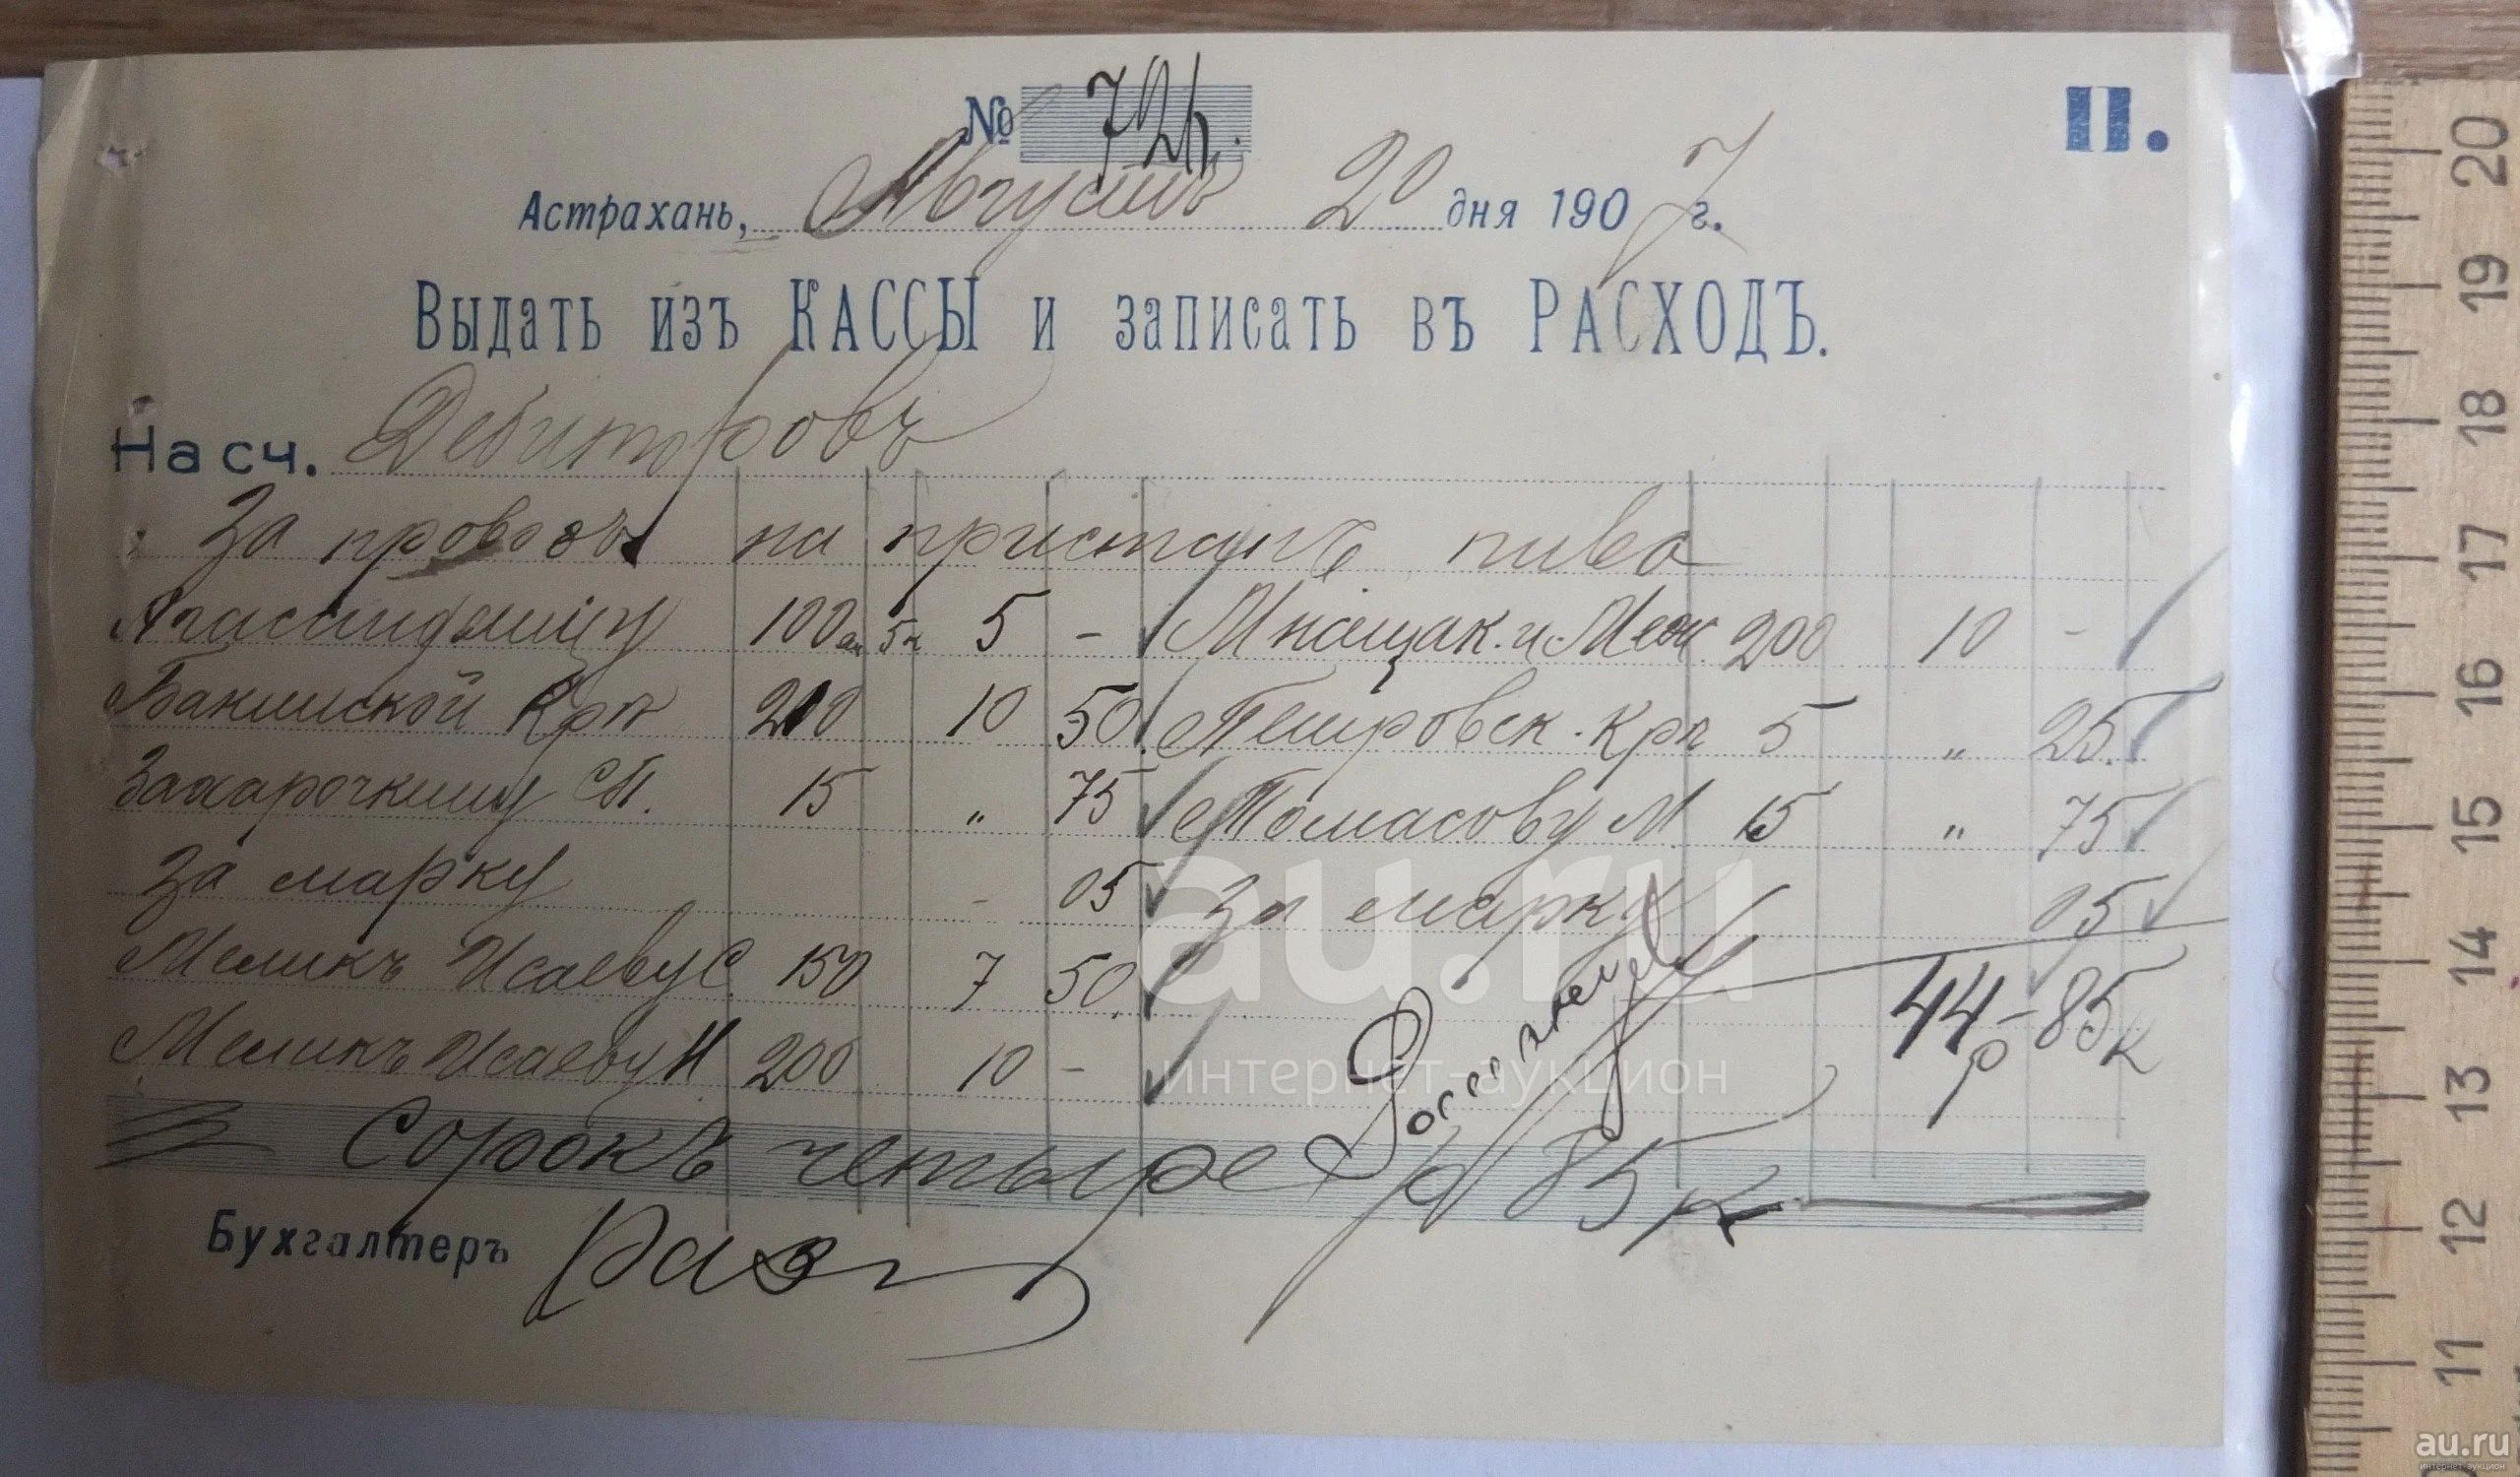 № 724.
II.
Астрахань, Августъ 20 дня 1907 г.
Выдать изъ КАССЫ и записать въ РАСХОДЪ.
На сч. Дебиторовъ
За провозъ на пристань пива
100 5к 5 -
Мнацак. и Меж 200 10 -
Бакинской Крп 210 10 50
Петровск. Крп 5 „ 25
Захарочкину СП. 15 „ 75
Томасову М 15 „ 75
За марку - 05
За марку 05
Меликъ Исаеву С 150 7 50
Меликъ Исаеву И 200 10 -
44р-85к
Сорокъ четыре р 85 к
Бухгалтеръ
au.ru
интернет-аукцион
20
19
18
17
16
15
14
13
12
11
au.ru
интернет-аукцион